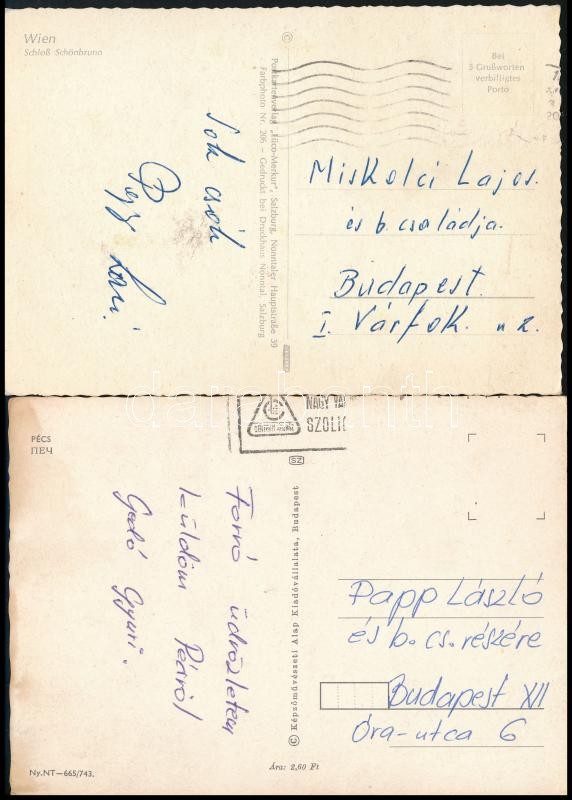 Wien
Schloß Schönbrunn
Sok csók
©
Postkartenverlag „Tüco-Merkur", Salzburg, Nonntaler Hauptstraße 39
Farbphoto Nr. 206 – Gedruckt bei Druckhaus Nonntal, Salzburg
Bei
5 Grußworten
verbilligtes
Porto
Miskolci Lajos.
és b. családja.
Budapest.
I. Várfok. u 2.
PÉCS
ПЕЧ
NAGY
SZOLG
SZ
Forró üdvözletem
küldöm Pécsről
Gedó Gyuri.
© Képzőművészeti Alap Kiadóvállalata, Budapest
Papp László
és b. cs. részére
Budapest XII
Óra-utca 6
Ny.NT—665/743.
Ára: 2,60 Ft